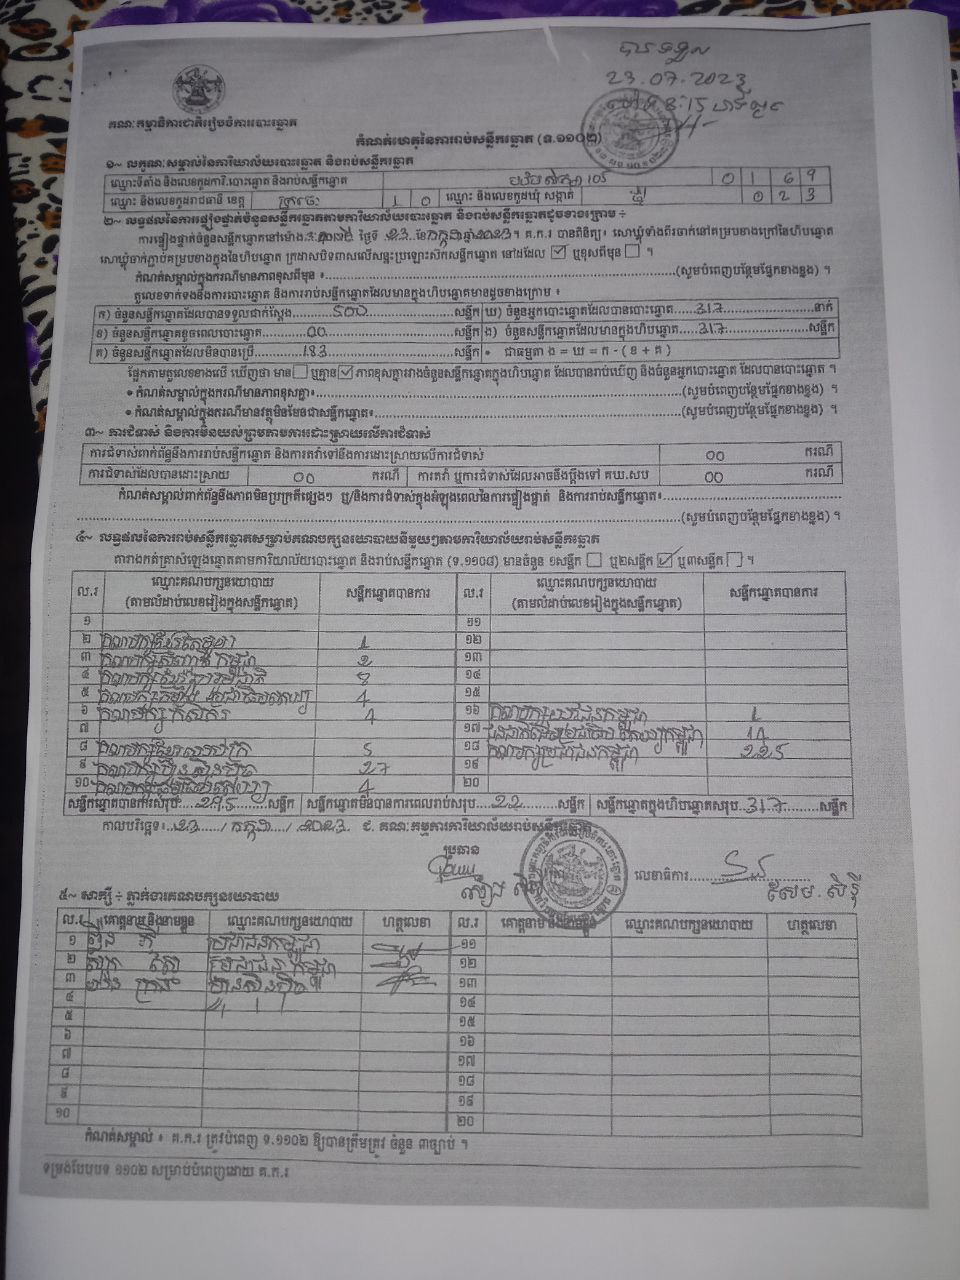 បានទទួល
23.07.2023
ម៉ោង 8:15
គណៈកម្មាធិការជាតិរៀបចំការបោះឆ្នោត
កំណត់ហេតុនៃការរាប់សន្លឹកឆ្នោត (ទ.១១០២)
១~ លក្ខណៈសម្គាល់នៃការិយាល័យបោះឆ្នោត និងរាប់សន្លឹកឆ្នោត
ឈ្មោះទីតាំង និងលេខកូដការិ.បោះឆ្នោត និងរាប់សន្លឹកឆ្នោត 0169
ឈ្មោះ និងលេខកូដរាជធានី ខេត្ត ក្រចេះ 10 ឈ្មោះ និងលេខកូដឃុំ សង្កាត់ 023
២~ លទ្ធផលនៃការផ្ទៀងផ្ទាត់ចំនួនសន្លឹកឆ្នោតតាមការិយាល័យបោះឆ្នោត និងរាប់សន្លឹកឆ្នោតដូចខាងក្រោម ÷
ការផ្ទៀងផ្ទាត់ចំនួនសន្លឹកឆ្នោតនៅម៉ោង ថ្ងៃទី 23 ខែ កក្កដា ឆ្នាំ 2023 ។ គ.ក.រ បានពិនិត្យ សោឃ្មុំទាំងពីរចាក់នៅគម្របខាងក្រៅនៃហិបឆ្នោត
សោឃ្មុំចាក់ភ្ជាប់គម្របខាងក្នុងនៃហិបឆ្នោត ក្រដាសបិទពាសលើសន្ទះប្រឡោះស៊កសន្លឹកឆ្នោត នៅដដែល ☑ ឬខុសពីមុន ☐ ។
កំណត់សម្គាល់ក្នុងករណីមានភាពខុសពីមុន ៖ (សូមបំពេញបន្ថែមផ្នែកខាងខ្នង) ។
តួលេខទាក់ទងនឹងការបោះឆ្នោត និងការរាប់សន្លឹកឆ្នោតដែលមានក្នុងហិបឆ្នោតមានដូចខាងក្រោម ៖
ក) ចំនួនសន្លឹកឆ្នោតដែលបានទទួលជាក់ស្តែង 500 សន្លឹក ឃ) ចំនួនអ្នកបោះឆ្នោតដែលបានបោះឆ្នោត 317 នាក់
ខ) ចំនួនសន្លឹកឆ្នោតខូចពេលបោះឆ្នោត 00 សន្លឹក ង) ចំនួនសន្លឹកឆ្នោតដែលមានក្នុងហិបឆ្នោត 317 សន្លឹក
គ) ចំនួនសន្លឹកឆ្នោតដែលមិនបានប្រើ 183 សន្លឹក • ជាធម្មតា ង = ឃ = ក - ( ខ + គ )
ផ្អែកតាមតួលេខខាងលើ ឃើញថា មាន ☐ ឬគ្មាន ☑ ភាពខុសគ្នារវាងចំនួនសន្លឹកឆ្នោតក្នុងហិបឆ្នោត ដែលបានរាប់ឃើញ និងចំនួនអ្នកបោះឆ្នោត ដែលបានបោះឆ្នោត ។
• កំណត់សម្គាល់ក្នុងករណីមានភាពខុសគ្នា៖ (សូមបំពេញបន្ថែមផ្នែកខាងខ្នង) ។
• កំណត់សម្គាល់ក្នុងករណីមានវត្ថុមិនមែនជាសន្លឹកឆ្នោត៖ (សូមបំពេញបន្ថែមផ្នែកខាងខ្នង) ។
៣~ ការជំទាស់ និងការមិនយល់ព្រមតាមការដោះស្រាយលើការជំទាស់
ការជំទាស់ពាក់ព័ន្ធនឹងការរាប់សន្លឹកឆ្នោត និងការតវ៉ាទៅនឹងការដោះស្រាយលើការជំទាស់ 00 ករណី
ការជំទាស់ដែលបានដោះស្រាយ 00 ករណី ការតវ៉ា ឬការជំទាស់ដែលអាចនឹងប្តឹងទៅ គឃ.សប 00 ករណី
កំណត់សម្គាល់ពាក់ព័ន្ធនឹងភាពមិនប្រក្រតីផ្សេងៗ ឬ/និងការជំទាស់ក្នុងអំឡុងពេលនៃការផ្ទៀងផ្ទាត់ និងការរាប់សន្លឹកឆ្នោត៖
(សូមបំពេញបន្ថែមផ្នែកខាងខ្នង) ។
៤~ លទ្ធផលនៃការរាប់សន្លឹកឆ្នោតសម្រាប់គណបក្សនយោបាយនីមួយៗតាមការិយាល័យរាប់សន្លឹកឆ្នោត
តារាងកត់ត្រាសំឡេងឆ្នោតតាមការិយាល័យបោះឆ្នោត និងរាប់សន្លឹកឆ្នោត (ទ.១១០៨) មានចំនួន ១សន្លឹក ☐ ឬ២សន្លឹក ☑ ឬ៣សន្លឹក ☐ ។
ល.រ ឈ្មោះគណបក្សនយោបាយ សន្លឹកឆ្នោតបានការ ល.រ ឈ្មោះគណបក្សនយោបាយ សន្លឹកឆ្នោតបានការ
(តាមលំដាប់លេខរៀងក្នុងសន្លឹកឆ្នោត) (តាមលំដាប់លេខរៀងក្នុងសន្លឹកឆ្នោត)
១ ១១
២ 1 ១២
៣ 2 ១៣
៤ 8 ១៤
៥ 4 ១៥
៦ គណបក្ស កសិករ 4 ១៦ 1
៧ ១៧ 10
៨ 5 ១៨ គណបក្សប្រជាជនកម្ពុជា 225
៩ គណបក្សហ្វ៊ុនស៊ិនប៉ិច 27 ១៩
១០ 4 ២០
សន្លឹកឆ្នោតបានការសរុប 295 សន្លឹក សន្លឹកឆ្នោតមិនបានការពេលរាប់សរុប 22 សន្លឹក សន្លឹកឆ្នោតក្នុងហិបឆ្នោតសរុប 317 សន្លឹក
កាលបរិច្ឆេទ៖ 23 / កក្កដា / 2023 ជ. គណៈកម្មការការិយាល័យរាប់សន្លឹកឆ្នោត
ប្រធាន
លេខាធិការ
៥~ សាក្សី ÷ ភ្នាក់ងារគណបក្សនយោបាយ
ល.រ គោត្តនាម និងនាមខ្លួន ឈ្មោះគណបក្សនយោបាយ ហត្ថលេខា ល.រ គោត្តនាម និងនាមខ្លួន ឈ្មោះគណបក្សនយោបាយ ហត្ថលេខា
១ ប្រជាជនកម្ពុជា ១១
២ ប្រជាជនកម្ពុជា ១២
៣ ហ្វ៊ុនស៊ិនប៉ិច ១៣
៤ ១៤
៥ ១៥
៦ ១៦
៧ ១៧
៨ ១៨
៩ ១៩
១០ ២០
កំណត់សម្គាល់ ៖ គ.ក.រ ត្រូវបំពេញ ទ.១១០២ ឱ្យបានត្រឹមត្រូវ ចំនួន ៣ច្បាប់ ។
ទម្រង់បែបបទ ១១០២ សម្រាប់បំពេញដោយ គ.ក.រ